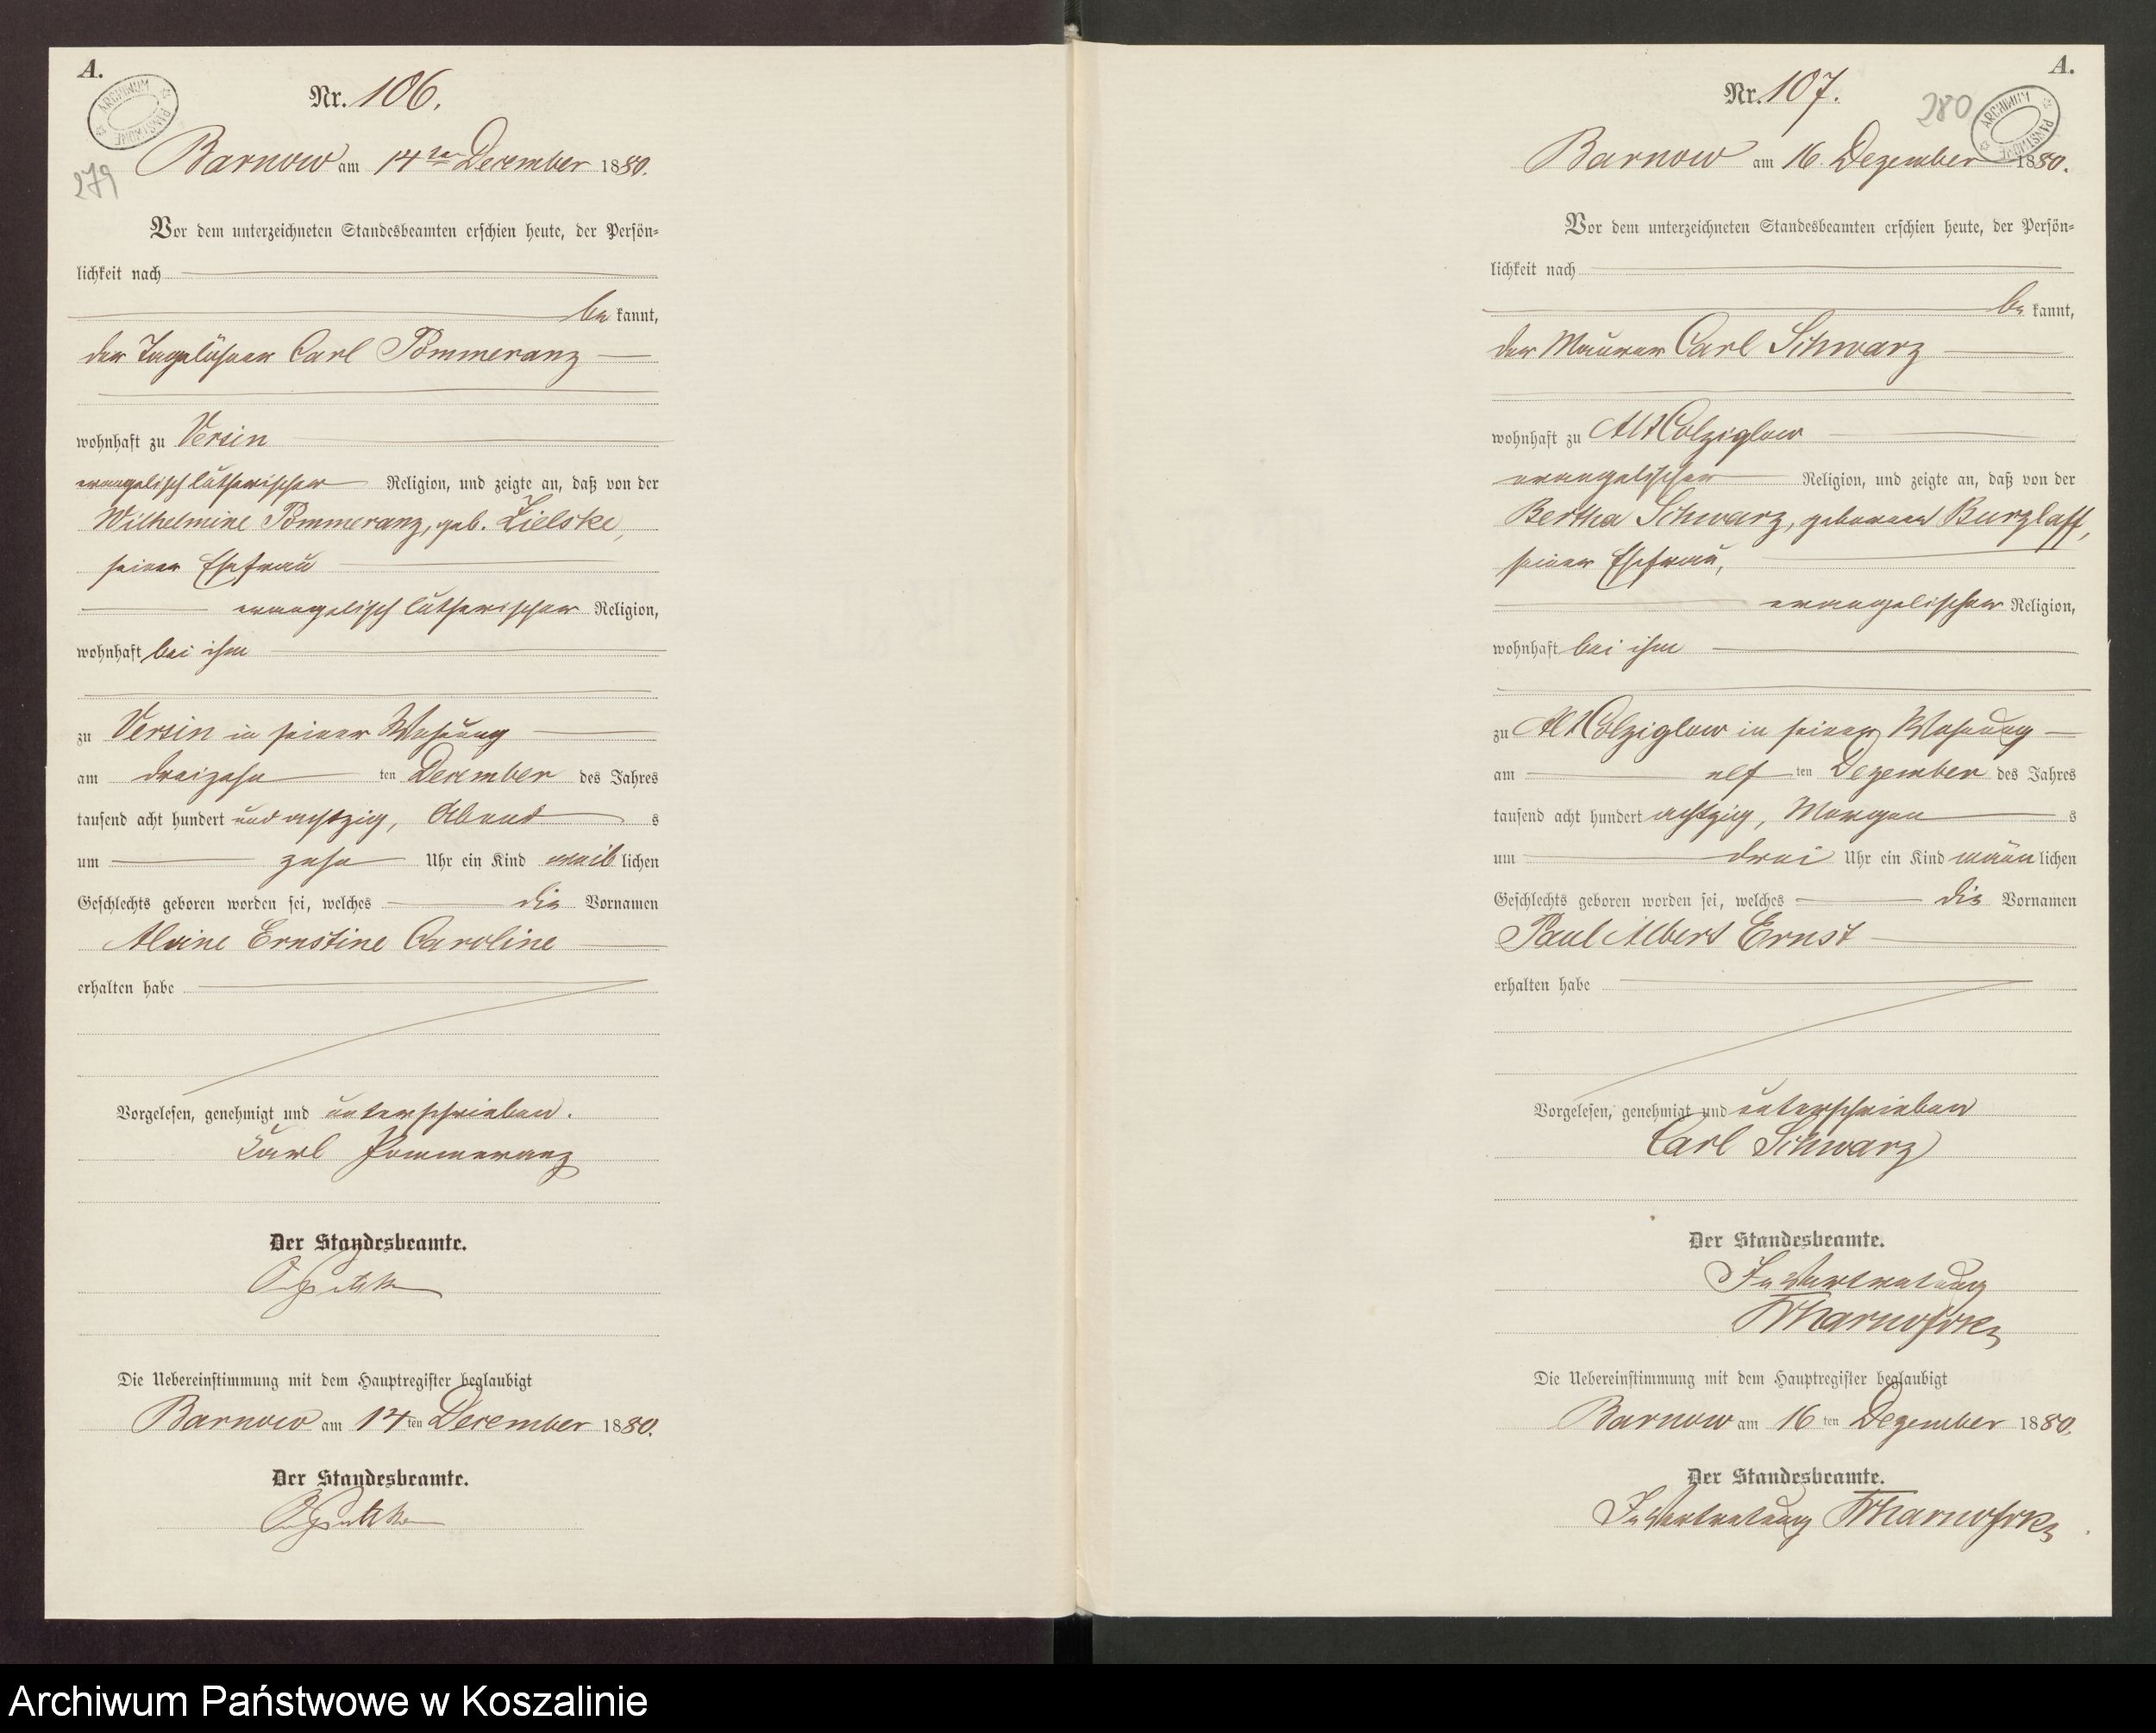 A.
ARCHIWUM PAŃSTWOWE
279
Nr. 106.
Barnow am 14ten December 1880.
Vor dem unterzeichneten Standesbeamten erschien heute, der Persön-
lichkeit nach
be kannt,
der Tagelöhner Carl Pommeranz
wohnhaft zu Versin
evangelisch lutherischer Religion, und zeigte an, daß von der
Wilhelmine Pommeranz, geb. Zielske,
seiner Ehefrau
evangelisch lutherischer Religion,
wohnhaft bei ihm
zu Versin in seiner Wohnung
am dreizehn ten December des Jahres
tausend acht hundert und achtzig, Abend s
um zehn Uhr ein Kind weib lichen
Geschlechts geboren worden sei, welches die Vornamen
Alvine Ernstine Caroline
erhalten habe
Vorgelesen, genehmigt und unterschrieben.
Karl Pommeranz
Der Standesbeamte.
Die Uebereinstimmung mit dem Hauptregister beglaubigt
Barnow am 14ten December 1880.
Der Standesbeamte.
A.
ARCHIWUM PAŃSTWOWE
280
Nr. 107.
Barnow am 16. Dezember 1880.
Vor dem unterzeichneten Standesbeamten erschien heute, der Persön-
lichkeit nach
be kannt,
der Maurer Carl Schwarz
wohnhaft zu Alt Colziglow
evangelischer Religion, und zeigte an, daß von der
Bertha Schwarz, geborenen Burzlaff,
seiner Ehefrau,
evangelischer Religion,
wohnhaft bei ihm
zu Alt Colziglow in seiner Wohnung
am elf ten Dezember des Jahres
tausend acht hundert achtzig, Morgen s
um drei Uhr ein Kind männ lichen
Geschlechts geboren worden sei, welches die Vornamen
Paul Albert Ernst
erhalten habe
Vorgelesen, genehmigt und unterschrieben
Carl Schwarz
Der Standesbeamte.
In Vertretung
Die Uebereinstimmung mit dem Hauptregister beglaubigt
Barnow am 16 ten Dezember 1880.
Der Standesbeamte.
In Vertretung
Archiwum Państwowe w Koszalinie